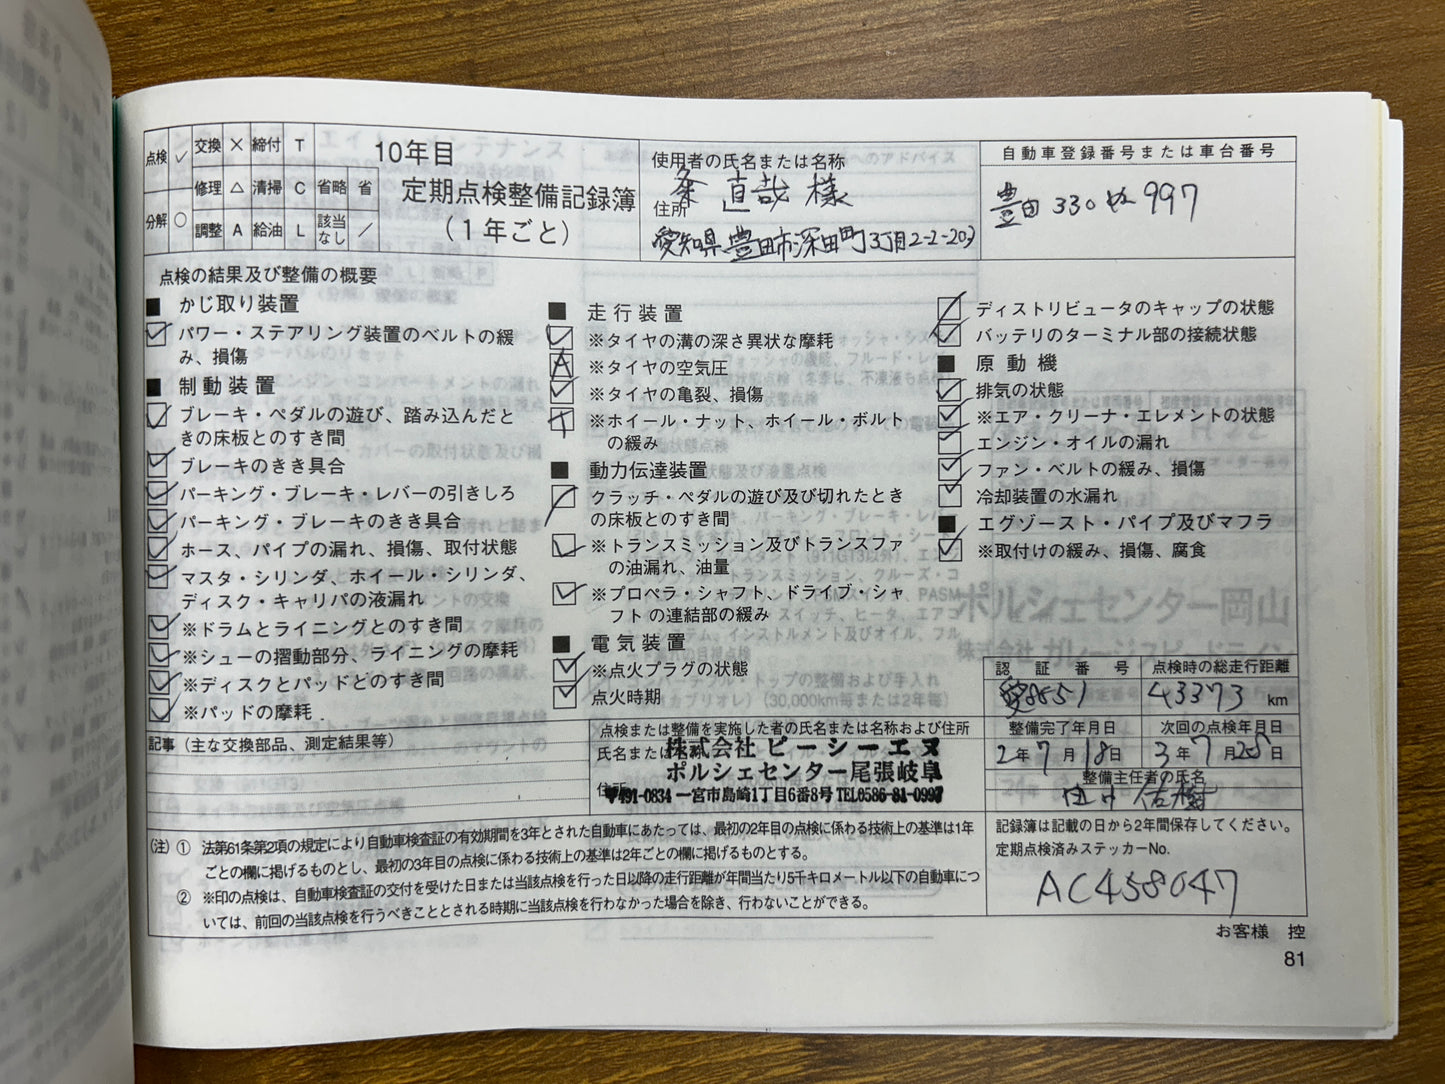 点検 ✓ 交換 × 締付 T
修理 △ 清掃 C 省略 省
分解 ○ 調整 A 給油 L 該当なし ／
10年目
定期点検整備記録簿
（1年ごと）
使用者の氏名または名称
条 直哉 様
住所
愛知県豊田市深田町3丁目2-2-203
自動車登録番号または車台番号
豊田 330 ぬ 997
点検の結果及び整備の概要
■ かじ取り装置
パワー・ステアリング装置のベルトの緩
み、損傷
■ 制動装置
ブレーキ・ペダルの遊び、踏み込んだと
きの床板とのすき間
ブレーキのきき具合
パーキング・ブレーキ・レバーの引きしろ
パーキング・ブレーキのきき具合
ホース、パイプの漏れ、損傷、取付状態
マスタ・シリンダ、ホイール・シリンダ、
ディスク・キャリパの液漏れ
※ドラムとライニングとのすき間
※シューの摺動部分、ライニングの摩耗
※ディスクとパッドとのすき間
※パッドの摩耗
■ 走行装置
※タイヤの溝の深さ異状な摩耗
A ※タイヤの空気圧
※タイヤの亀裂、損傷
T ※ホイール・ナット、ホイール・ボルト
の緩み
■ 動力伝達装置
クラッチ・ペダルの遊び及び切れたとき
の床板とのすき間
※トランスミッション及びトランスファ
の油漏れ、油量
※プロペラ・シャフト、ドライブ・シャ
フトの連結部の緩み
■ 電気装置
※点火プラグの状態
点火時期
ディストリビュータのキャップの状態
バッテリのターミナル部の接続状態
■ 原動機
排気の状態
※エア・クリーナ・エレメントの状態
エンジン・オイルの漏れ
ファン・ベルトの緩み、損傷
冷却装置の水漏れ
■ エグゾースト・パイプ及びマフラ
※取付けの緩み、損傷、腐食
認証番号 点検時の総走行距離
愛8551 43373 km
整備完了年月日 次回の点検年月日
2年7月18日 3年7月25日
整備主任者の氏名
田中 佑樹
記事（主な交換部品、測定結果等）
点検または整備を実施した者の氏名または名称および住所
氏名または名
株式会社 ピーシーエヌ
ポルシェセンター尾張岐阜
住所
〒491-0834 一宮市島崎1丁目6番8号 TEL0586-81-0997
（注）① 法第61条第2項の規定により自動車検査証の有効期間を3年とされた自動車にあたっては、最初の2年目の点検に係わる技術上の基準は1年
ごとの欄に掲げるものとし、最初の3年目の点検に係わる技術上の基準は2年ごとの欄に掲げるものとする。
② ※印の点検は、自動車検査証の交付を受けた日または当該点検を行った日以降の走行距離が年間当たり5千キロメートル以下の自動車につ
いては、前回の当該点検を行うべきこととされる時期に当該点検を行わなかった場合を除き、行わないことができる。
記録簿は記載の日から2年間保存してください。
定期点検済みステッカーNo.
AC458047
お客様 控
81